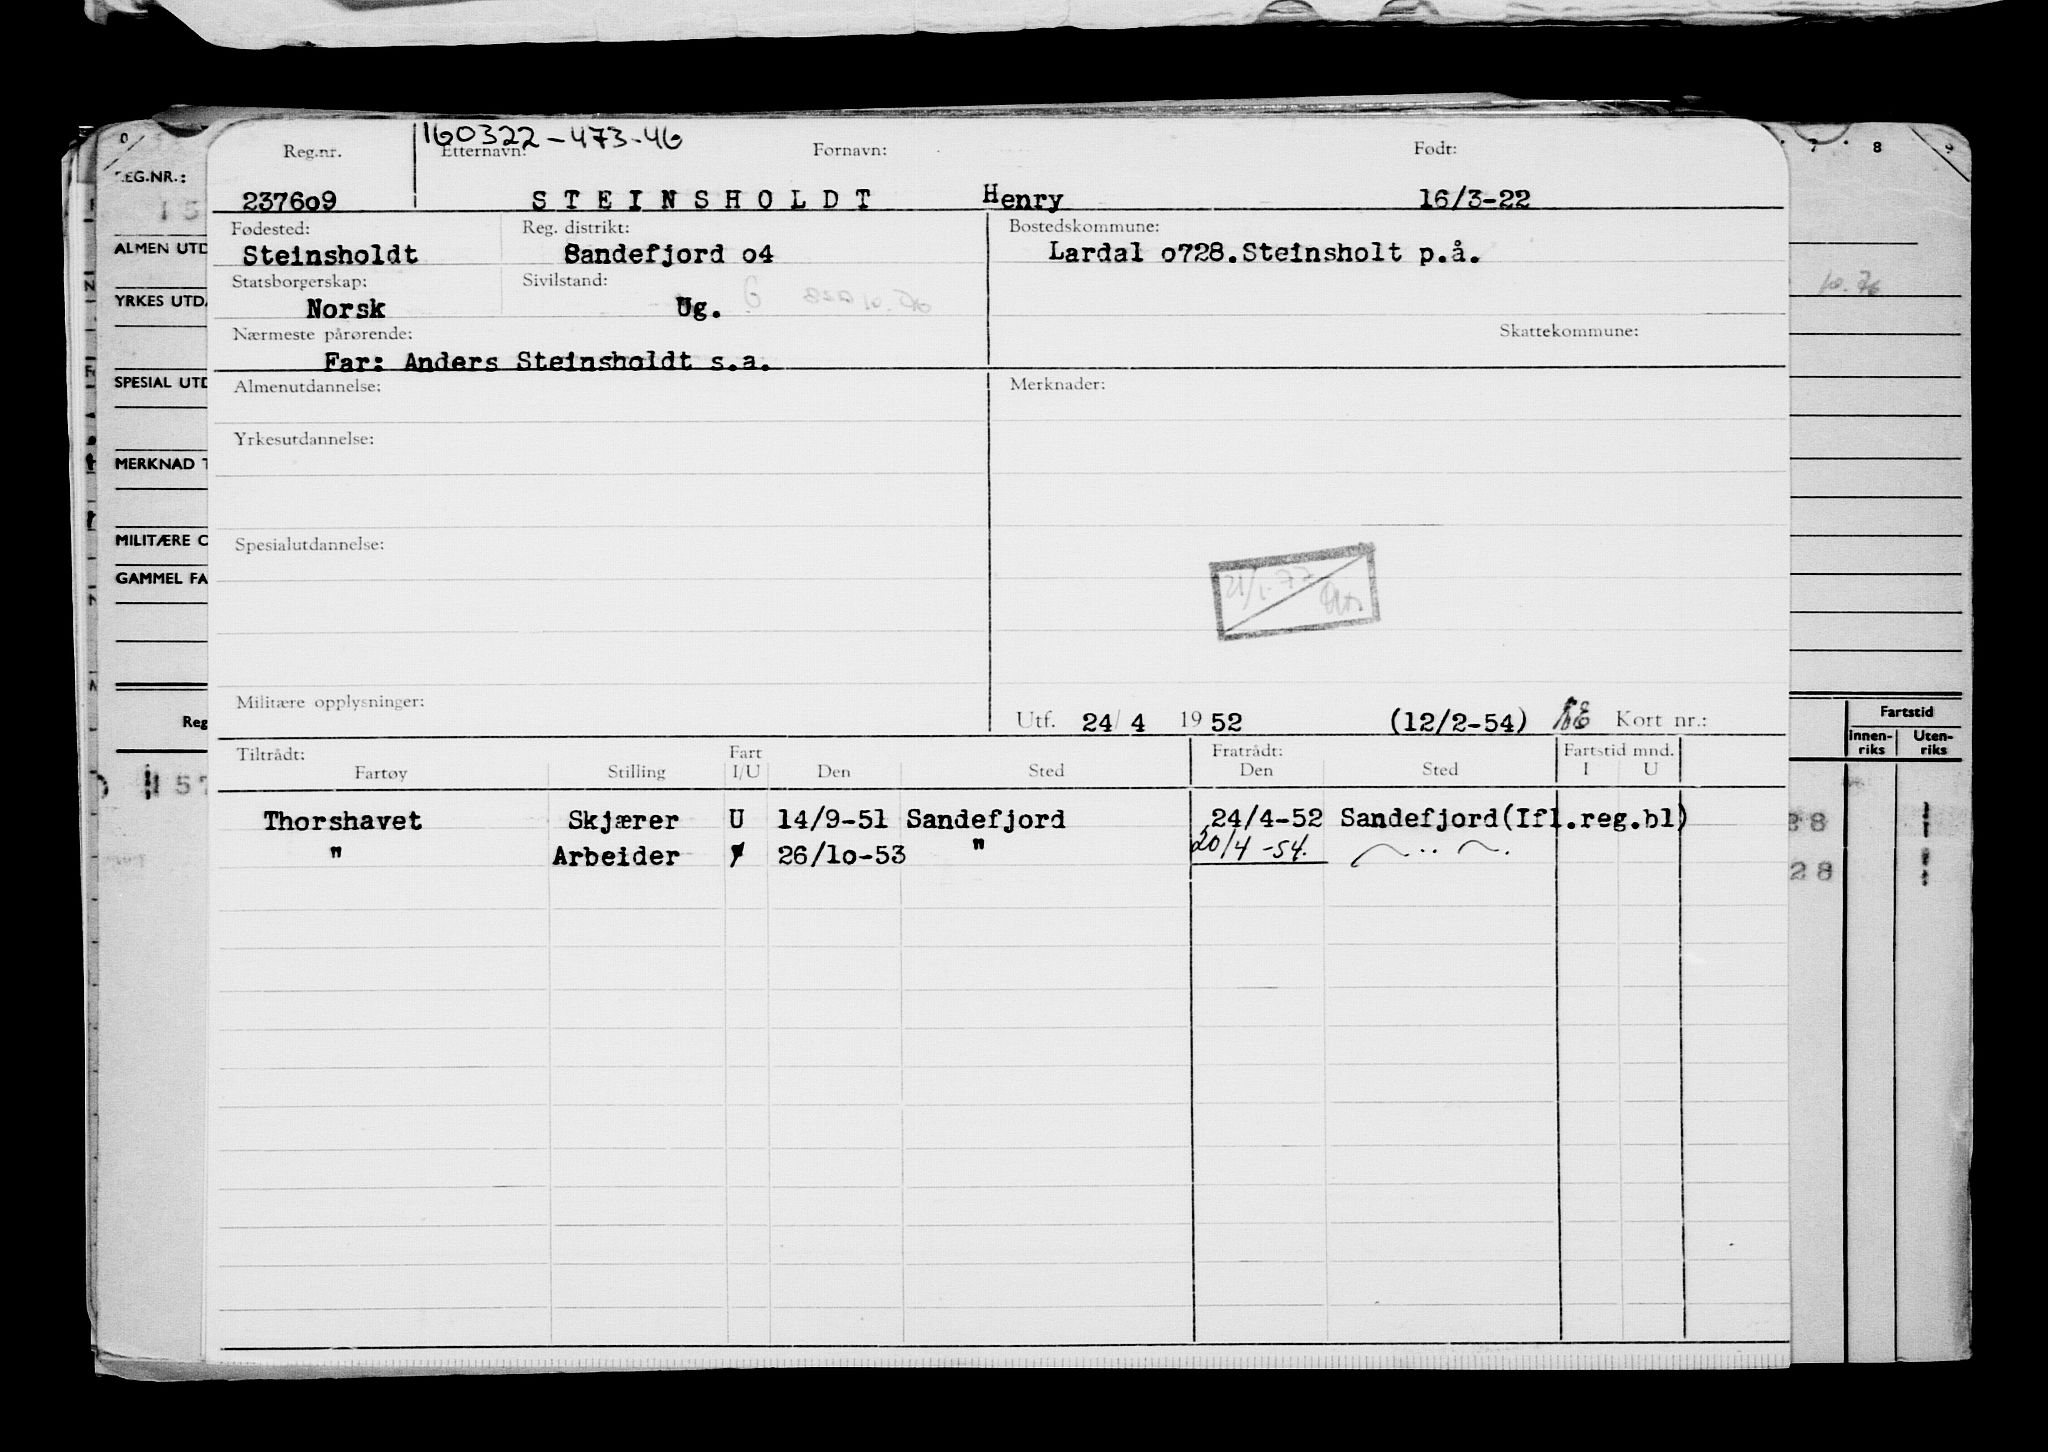 160322-473-46
Reg.nr. Etternavn: Fornavn: Født:
2376o9 STEINSHOLDT Henry 16/3-22
Fødested: Reg. distrikt: Bostedskommune:
Steinsholdt Sandefjord o4 Lardal o728.Steinsholt p.å.
Statsborgerskap: Sivilstand:
Norsk Ug. G
Nærmeste pårørende: Skattekommune:
Far: Anders Steinsholdt s.a.
Almenutdannelse: Merknader:
Yrkesutdannelse:
Spesialutdannelse:
21/1-77
Militære opplysninger:
Utf. 24/4 1952 (12/2-54) Kort nr.:
Tiltrådt: Fart Fratrådt: Fartstid mnd.
Fartøy Stilling I/U Den Sted Den Sted I U
Thorshavet Skjærer U 14/9-51 Sandefjord 24/4-52 Sandefjord(Ifl.reg.bl)
" Arbeider 26/1o-53 " 20/4-54. — " —
REG.NR.:
ALMEN UTD
YRKES UTDA
SPESIAL UTD
MERKNAD T
MILITÆRE O
GAMMEL FA
Reg
7 8 9
10.76
Fartstid
Innen-riks Uten-riks
28